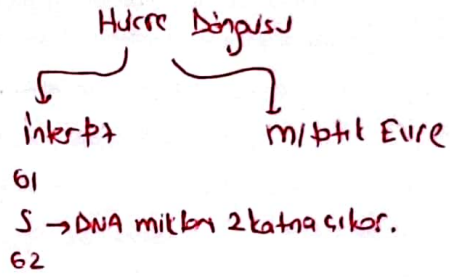 Hücre Döngüsü
interfz
m/ptit Evre
G1
S → DNA miktarı 2 katına çıkar.
G2